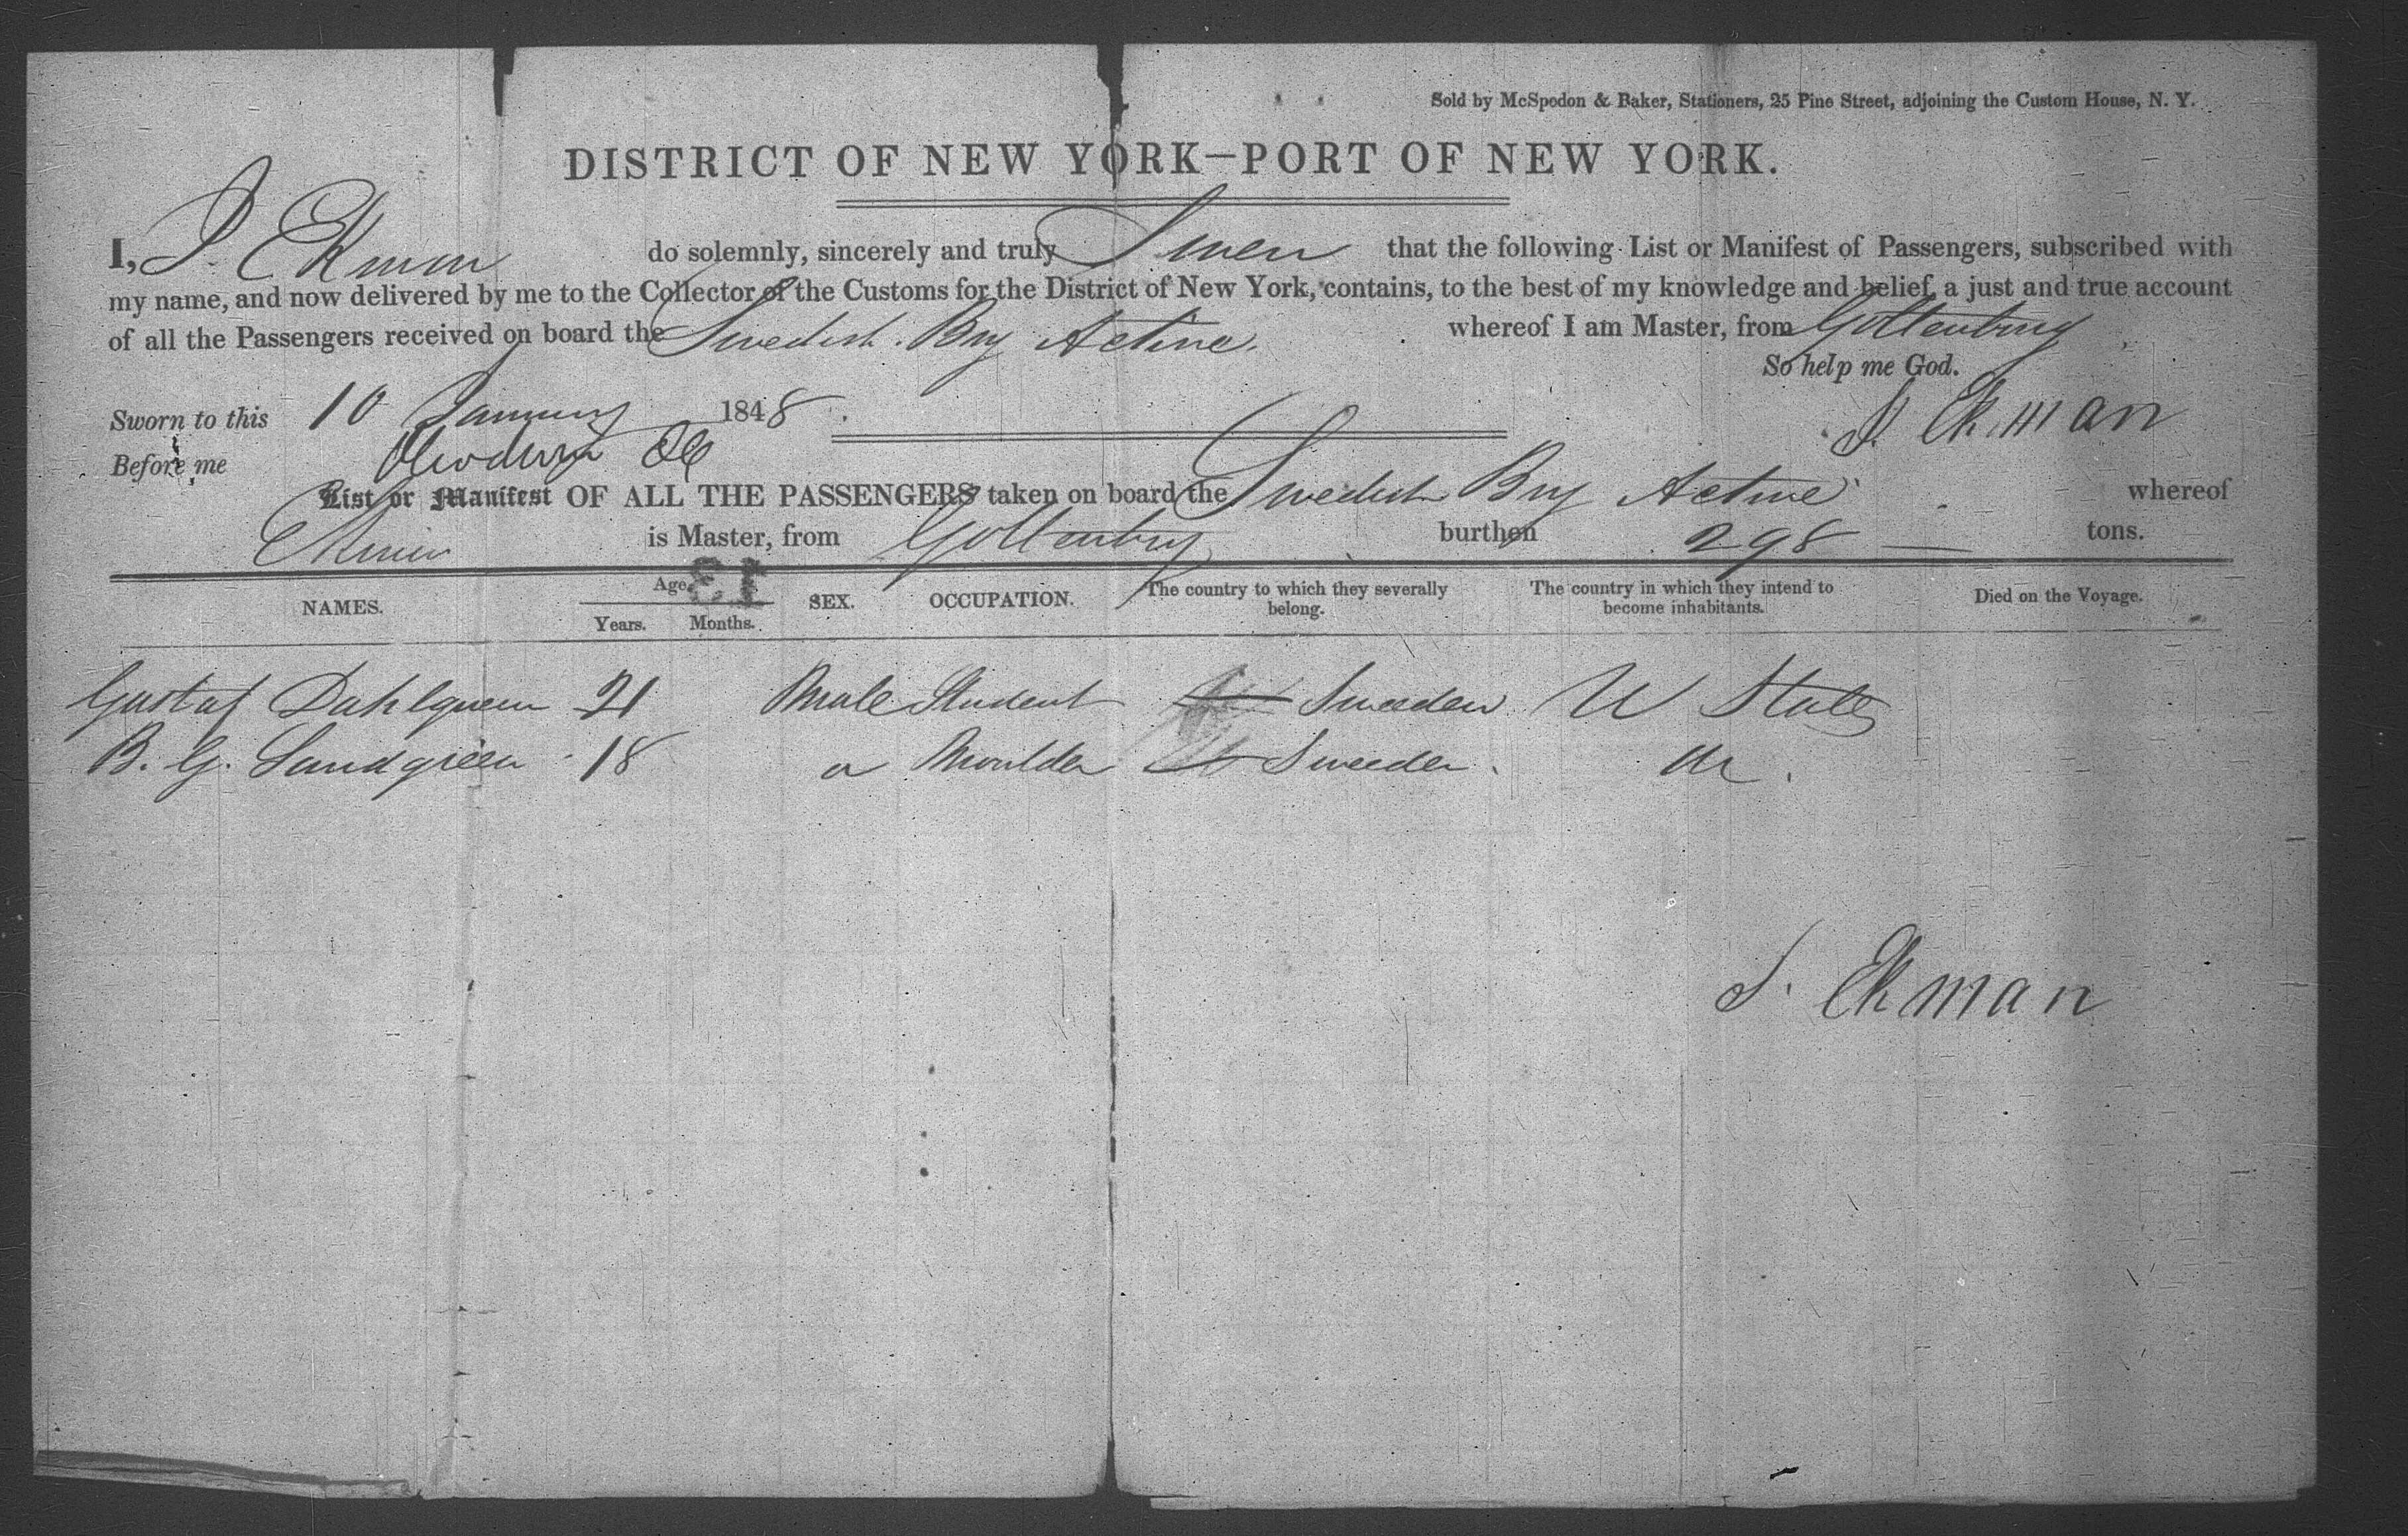 Sold by McSpedon & Baker, Stationers, 25 Pine Street, adjoining the Custom House, N. Y.
DISTRICT OF NEW YORK—PORT OF NEW YORK.
I, J. Ekman do solemnly, sincerely and truly Swear that the following List or Manifest of Passengers, subscribed with
my name, and now delivered by me to the Collector of the Customs for the District of New York, contains, to the best of my knowledge and belief, a just and true account
of all the Passengers received on board the Swedish Brig Active. whereof I am Master, from Gottenburg
So help me God.
Sworn to this 10 January 1848.
J. Ekman
Before me
List or Manifest OF ALL THE PASSENGERS taken on board the Swedish Brig Active whereof
is Master, from Gottenburg burthen 298 tons.
13
NAMES. Age. Years. Months. SEX. OCCUPATION. The country to which they severally belong. The country in which they intend to become inhabitants. Died on the Voyage.
Gustaf Dahlgreen 21 Male Student Sweeden U States
B. G. Sandgreen 18 Moulder Sweeden.
J. Ekman